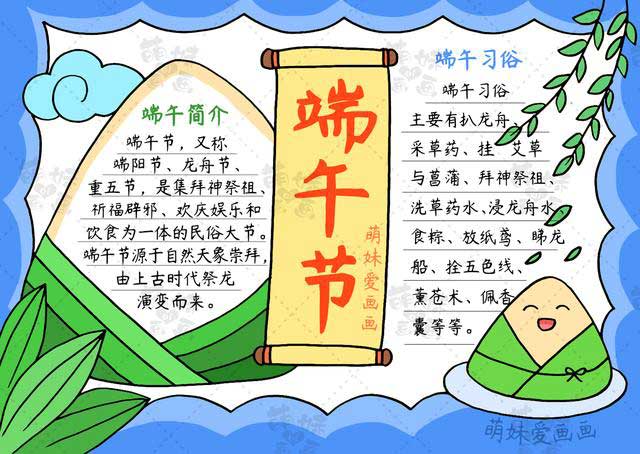 端午简介
端午节，又称
端阳节、龙舟节、
重五节，是集拜神祭祖、
祈福辟邪、欢庆娱乐和
饮食为一体的民俗大节。
端午节源于自然天象崇拜，
由上古时代祭龙
演变而来。
端午节
萌妹爱画画
端午习俗
端午习俗
主要有扒龙舟、
采草药、挂 艾草
与菖蒲、拜神祭祖、
洗草药水、浸龙舟水
食粽、放纸鸢、睇龙
船、拴五色线、
薰苍术、佩香
囊等等。
萌妹爱画画